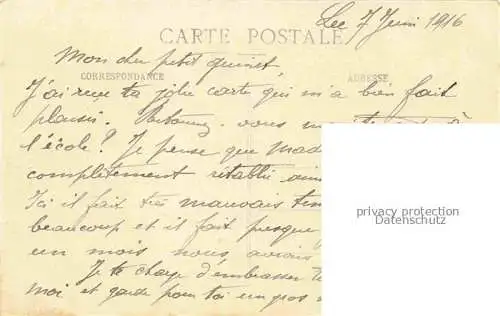 Lee 7 Juin 1916
CARTE POSTALE
Mon cher petit
CORRESPONDANCE
ADRESSE
J'ai reçu ta jolie carte qui m'a bien fait
plaisir. vous
l'école? Je pense que
complètement rétabli
Ici il fait très mauvais
beaucoup et il fait presque
un mois nous avions
Je te charge d'embrasser
moi et garde pour toi un gros
privacy protection
Datenschutz